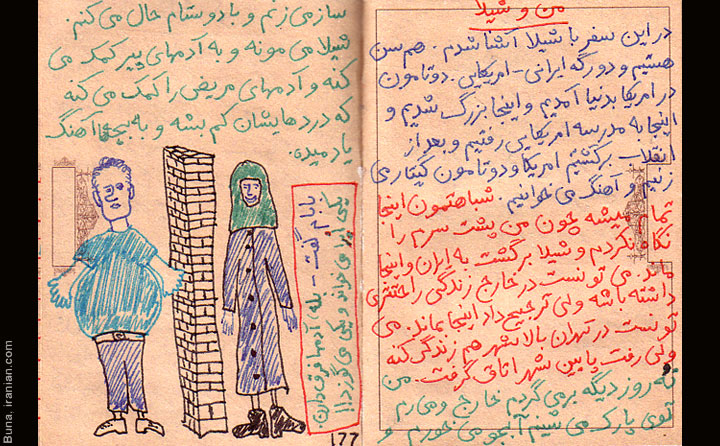 من و شیلا
در این سفر با شیلا آشنا شدم . هم سن
هستیم و دورگه ایرانی - امریکایی . دوتامون
در امریکا بدنیا آمدیم و اینجا بزرگ شدیم و
اینجا به مدرسه امریکایی رفتیم و بعد از
انقلاب برگشتیم امریکا و دوتامون گیتار می
زنیم و آهنگ می خوانیم. شباهتمون اینجا
تمام میشه چون من پشت سرم را
نگاه نکردم و شیلا برگشت به ایران و اینجا
ماند. می تونست در خارج زندگی راحتتری
داشته باشه ولی ترجیح داد اینجا بماند. می
تونست در تهران بالا شهر هم زندگی کنه
ولی رفت پایین شهر اتاق گرفت. من
نه روز دیگه بر می گردم خارج و می رم
توی پارک می شینم آبجو می خورم و
ساز می زنم و با دوستام حال می کنم.
شیلا می مونه و به آدمهای پیر کمک می
کنه و آدمهای مریض را کمک می کنه
که دردهایشان کم بشه و به بچه ها آهنگ
یاد میده.
بابام گفت - بله آدمها فرق دارن.
یکی اپرا می خواند و یکی می گوزد!!
177
Buna, iranian.com